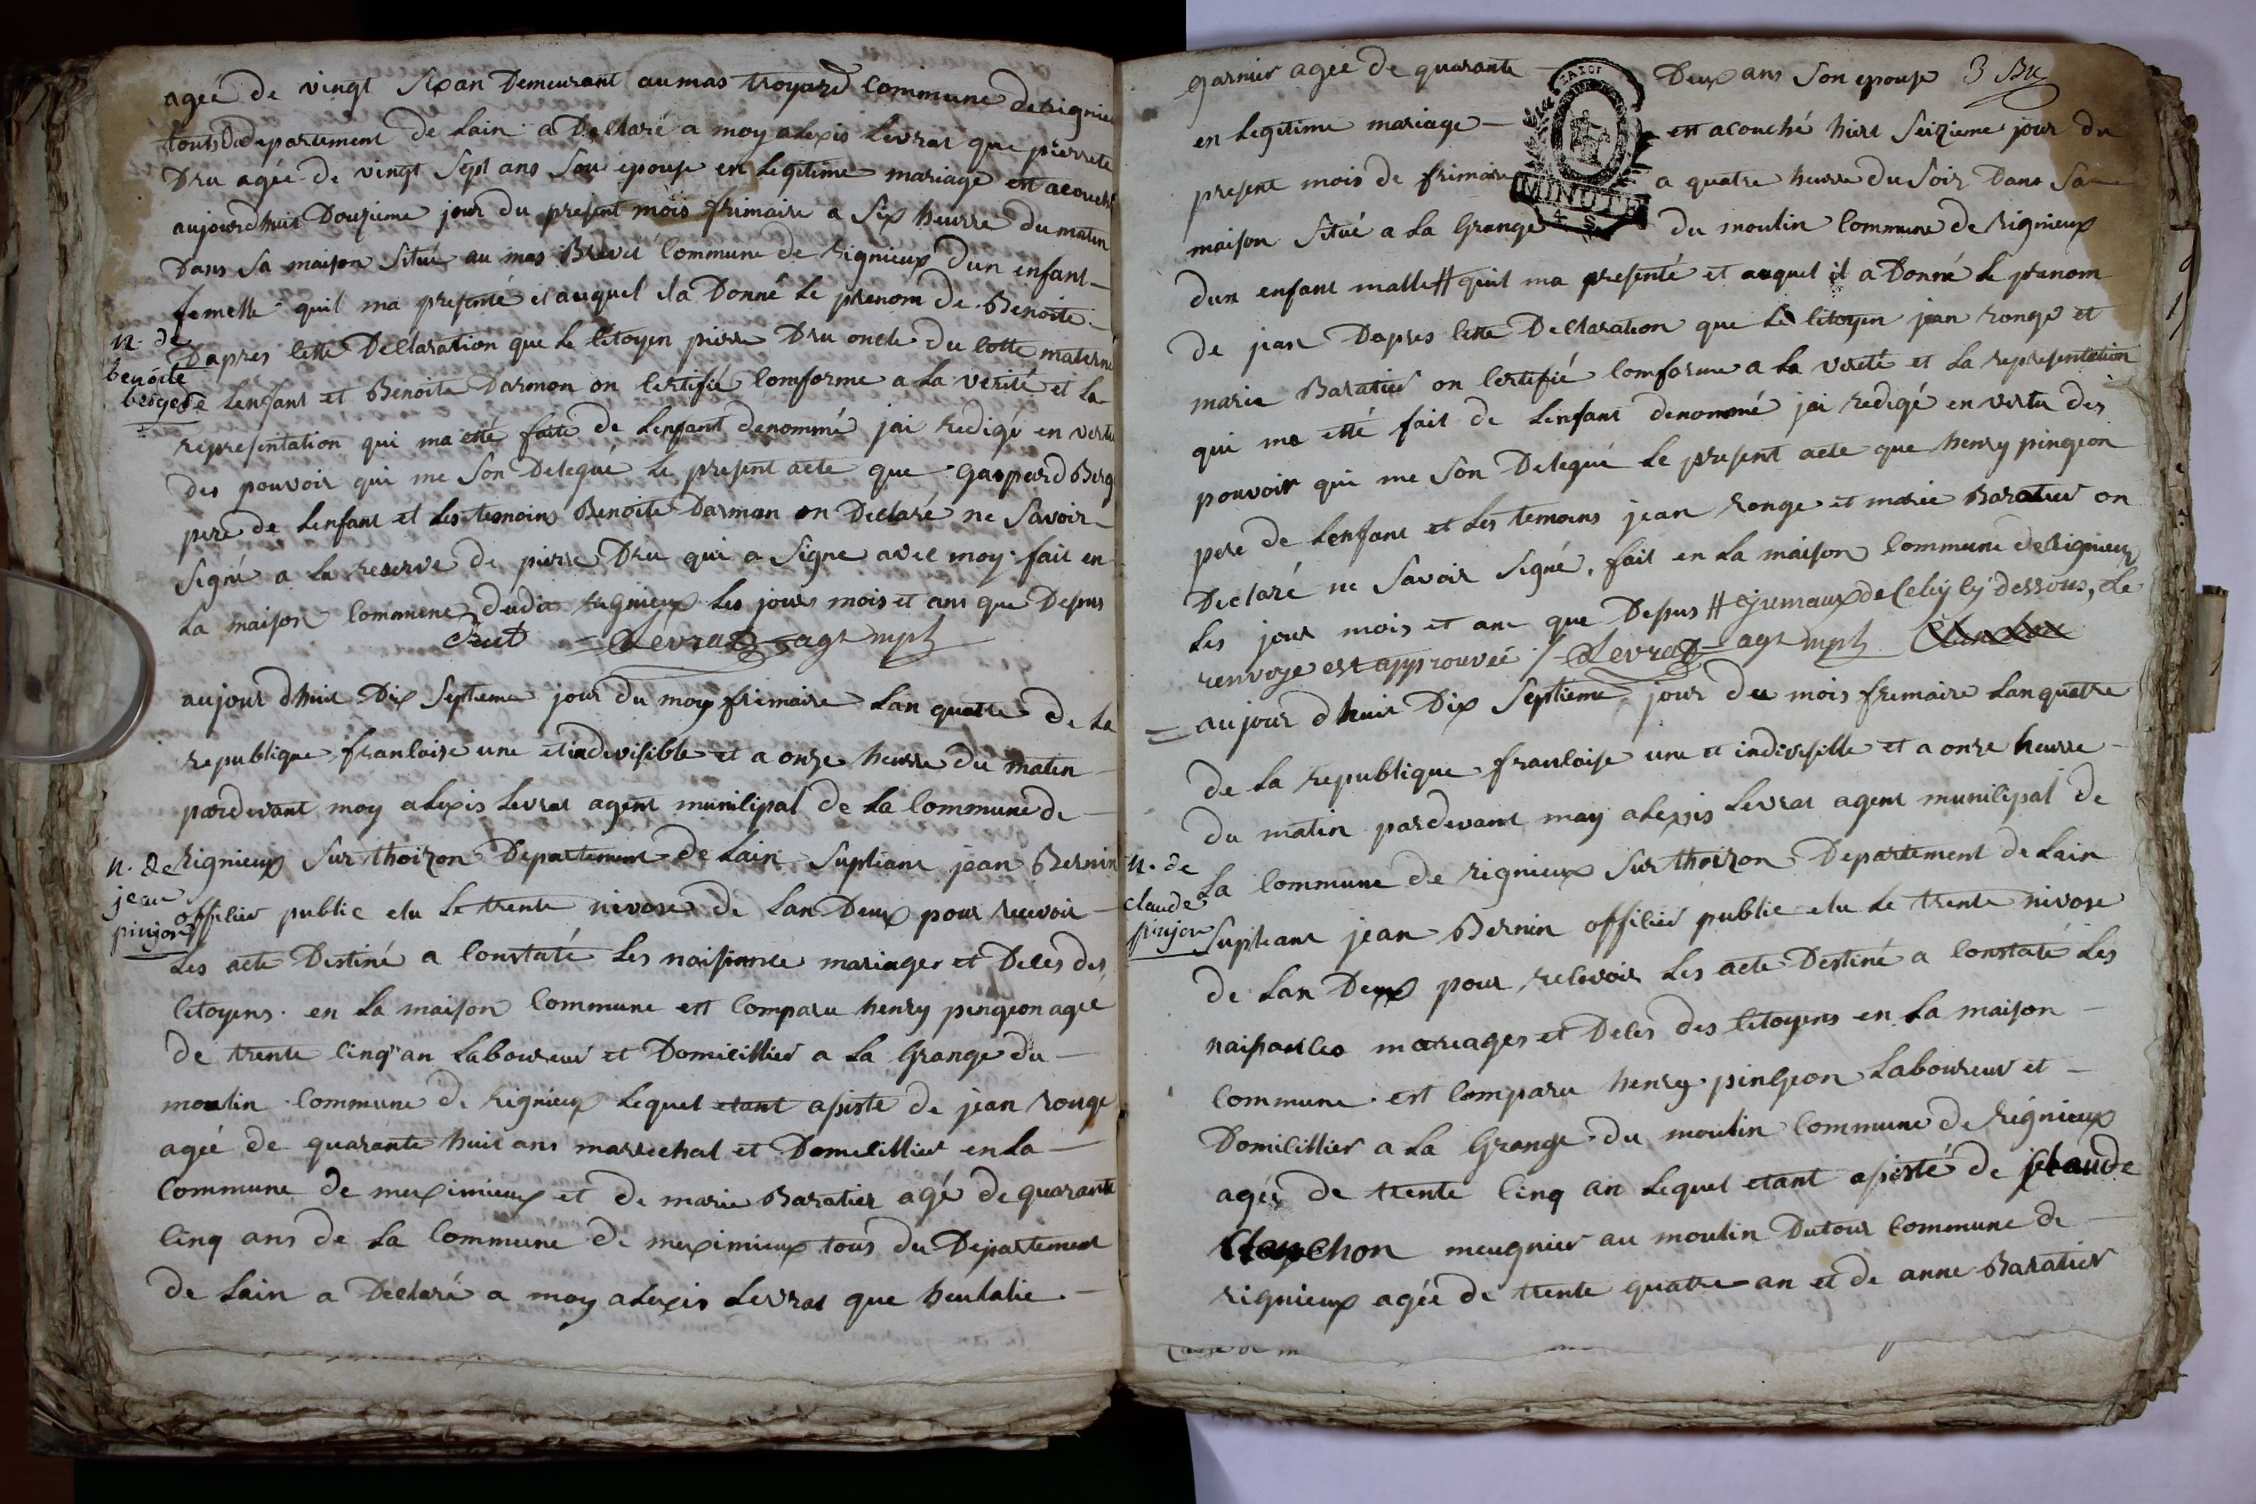 agée de vingt six an Demeurant au mas troyard Commune de Rignieu
touts Ddepartement de Lain a Declaré a moy alexis Levrat que pierrete
Dru agée de vingt Sept ans Son epouse en Legitime mariage est acouché
aujourdhuit Douzieme jour du present mois frimaire a Six heurre du matin
Dans Sa maison Situé au mas Brevet Commune de Rignieux Dun enfant
femelle quil ma presenté et auquel ila Donné Le prenom de Benoite
Dapres Cette Declaration que Le Citoyen pierre Dru oncle Du Cotte materne
n. de
benoite
berger
de Lenfant et Benoite Darmon on Certifié Comforme a La verité et La
representation qui ma etté faite de Lenfant denommé jai redigé en vertu
des pouvoir qui me Son Delegué Le present acte que gaspard Berg
pere de Lenfant et Les temoins Benoite Darmon on Declaré ne Savoir
Signé a La reserve de pierre Dru qui a Signe avec moy fait en
La maison Commune dudit rignieux Les jour mois et ans que Depus
Drut Levrat agt mpl
aujour dhuit Dix Septieme jour du moy frimaire Lan quatre de La
republique francaise une et indevisible et a onze heurre du matin
pardevant moy alexis Levrat agent municipal de La Commune de
n. de
jean
pinjon
Rignieux Sur thoizon Departement de Lain Supleant jean Bernin
officier public elu Le trente nivose de Lan Deux pour recevoir
Les acte Destiné a Constaté Les naissance mariages et Deces des
Citoyens en La maison Commune est Comparu henry pingeon agée
de trente Cinq an Laboureur et Domicillier a La Grange du
moulin Commune de Rignieux Lequel etant assiste de jean ronge
agée de quarante huit ans marrechal et Domicillier en La
Commune de meximieux et de marie Baratier agé de quarante
Cinq ans de La Commune de meximieux tous du Departement
de Lain a Declaré a moy alexis Levrat que heulalie
garnier agée de quarante Deux ans Son epouse 3 Bre
en Legitime mariage est acouché hiere Seizieme jour du
present mois de frimaire a quatre heurre du Soir Dans Sa
MINUTE
4 S
maison Situé a La Grange du moulin Commune de Rignieux
dun enfant malle # quil ma presenté et auquel il a Donné Le prenom
de jean Dapres Cette Declaration que Le Citoyen jean ronge et
marie Baratier on Certifié Comforme a La verité et La representation
qui ma etté fait de Lenfant denommé jai redigé en vertu des
pouvoir qui me Son Delegué Le present acte que henry pingeon
pere de Lenfant et Les temoins jean ronge et marie Baratier on
Declaré ne Savoir Signé, fait en La maison Commune de Rignieux
Les jour mois et ans que Depus # jumaux de Celuy Cy dessous, Le
renvoye est approuvée Levrat agt mpl
aujour dhuit Dix Septieme jour du mois frimaire Lan quatre
de La republique francaise une et indivisille et a onze heurre
du matin pardevant moy alexis Levrat agent municipal de
n. de
claude
pinjon
La Commune de rignieux Sur thoizon Departement de Lain
Supleant jean Bernin officier public elu Le trente nivose
de Lan Deux pour recevoir Les acte Destiné a Constaté Les
naissances mariages et Deces des Citoyens en La maison
Commune est Comparu henry pingeon Laboureur et
Domicillier a La Grange du moulin Commune de Rignieux
agée de trente Cinq an Lequel etant assisté de Claude
Clanchon meugnier au moulin Dutour Commune de
rignieux agée de trente quatre an et de anne Baratier